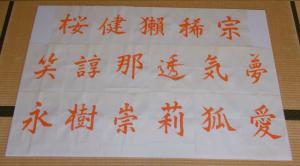 桜健獺稀宗
笑諄那透気夢
永樹崇莉狐愛